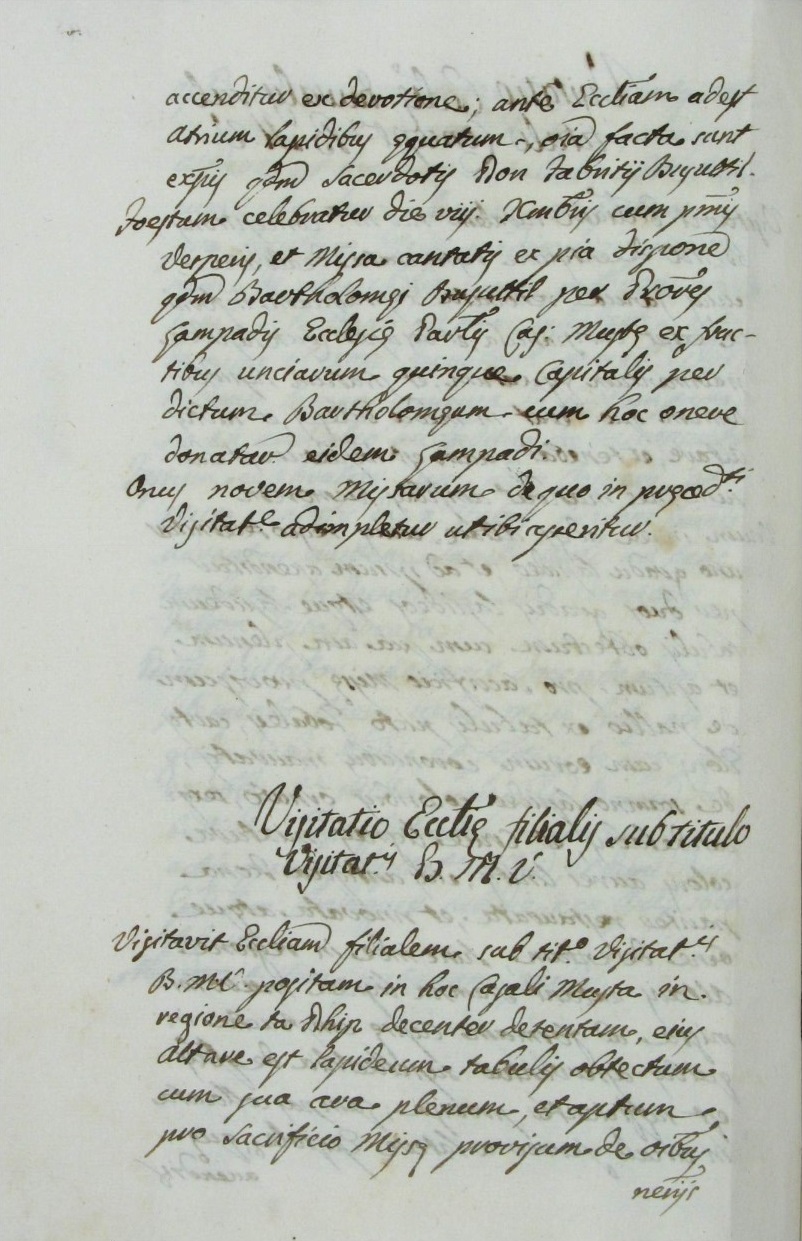 accenditur ex devotione; ante Eccliam adest
Atrium lapidibus equatum, oia facta sunt
expis qdm Sacerdotis Don Fabritij Busuttil.
Festum celebratur die viij. Xmbris cum pmis
Vesperis, et Missa cantatis ex pia dispone
qdm Bartholomei Busuttil per Prores
Lampadis Ecclesię Parlis Cas: Mustę ex fruc-
tibus unciarum quinque Capitalis per
dictum Bartholomeum cum hoc onere
donatar eidem Lampadi.
Onus novem Missarum de quo in pręced.ti
Visitat.e adimpletur ut ibi asseritur.
Visitatio Ecclię filialis sub titulo
Visitat.is B. M. V.
Visitavit Eccliam filialem sub tit.o Visitat.is
B. M. V. positam in hoc Casali Musta in
regione ta Dhip decenter detentam, eius
Altare est lapideum tabulis obtectum
cum sua ara plenum, et aptum
pro Sacrificio Missę provisum de oibus
neriis